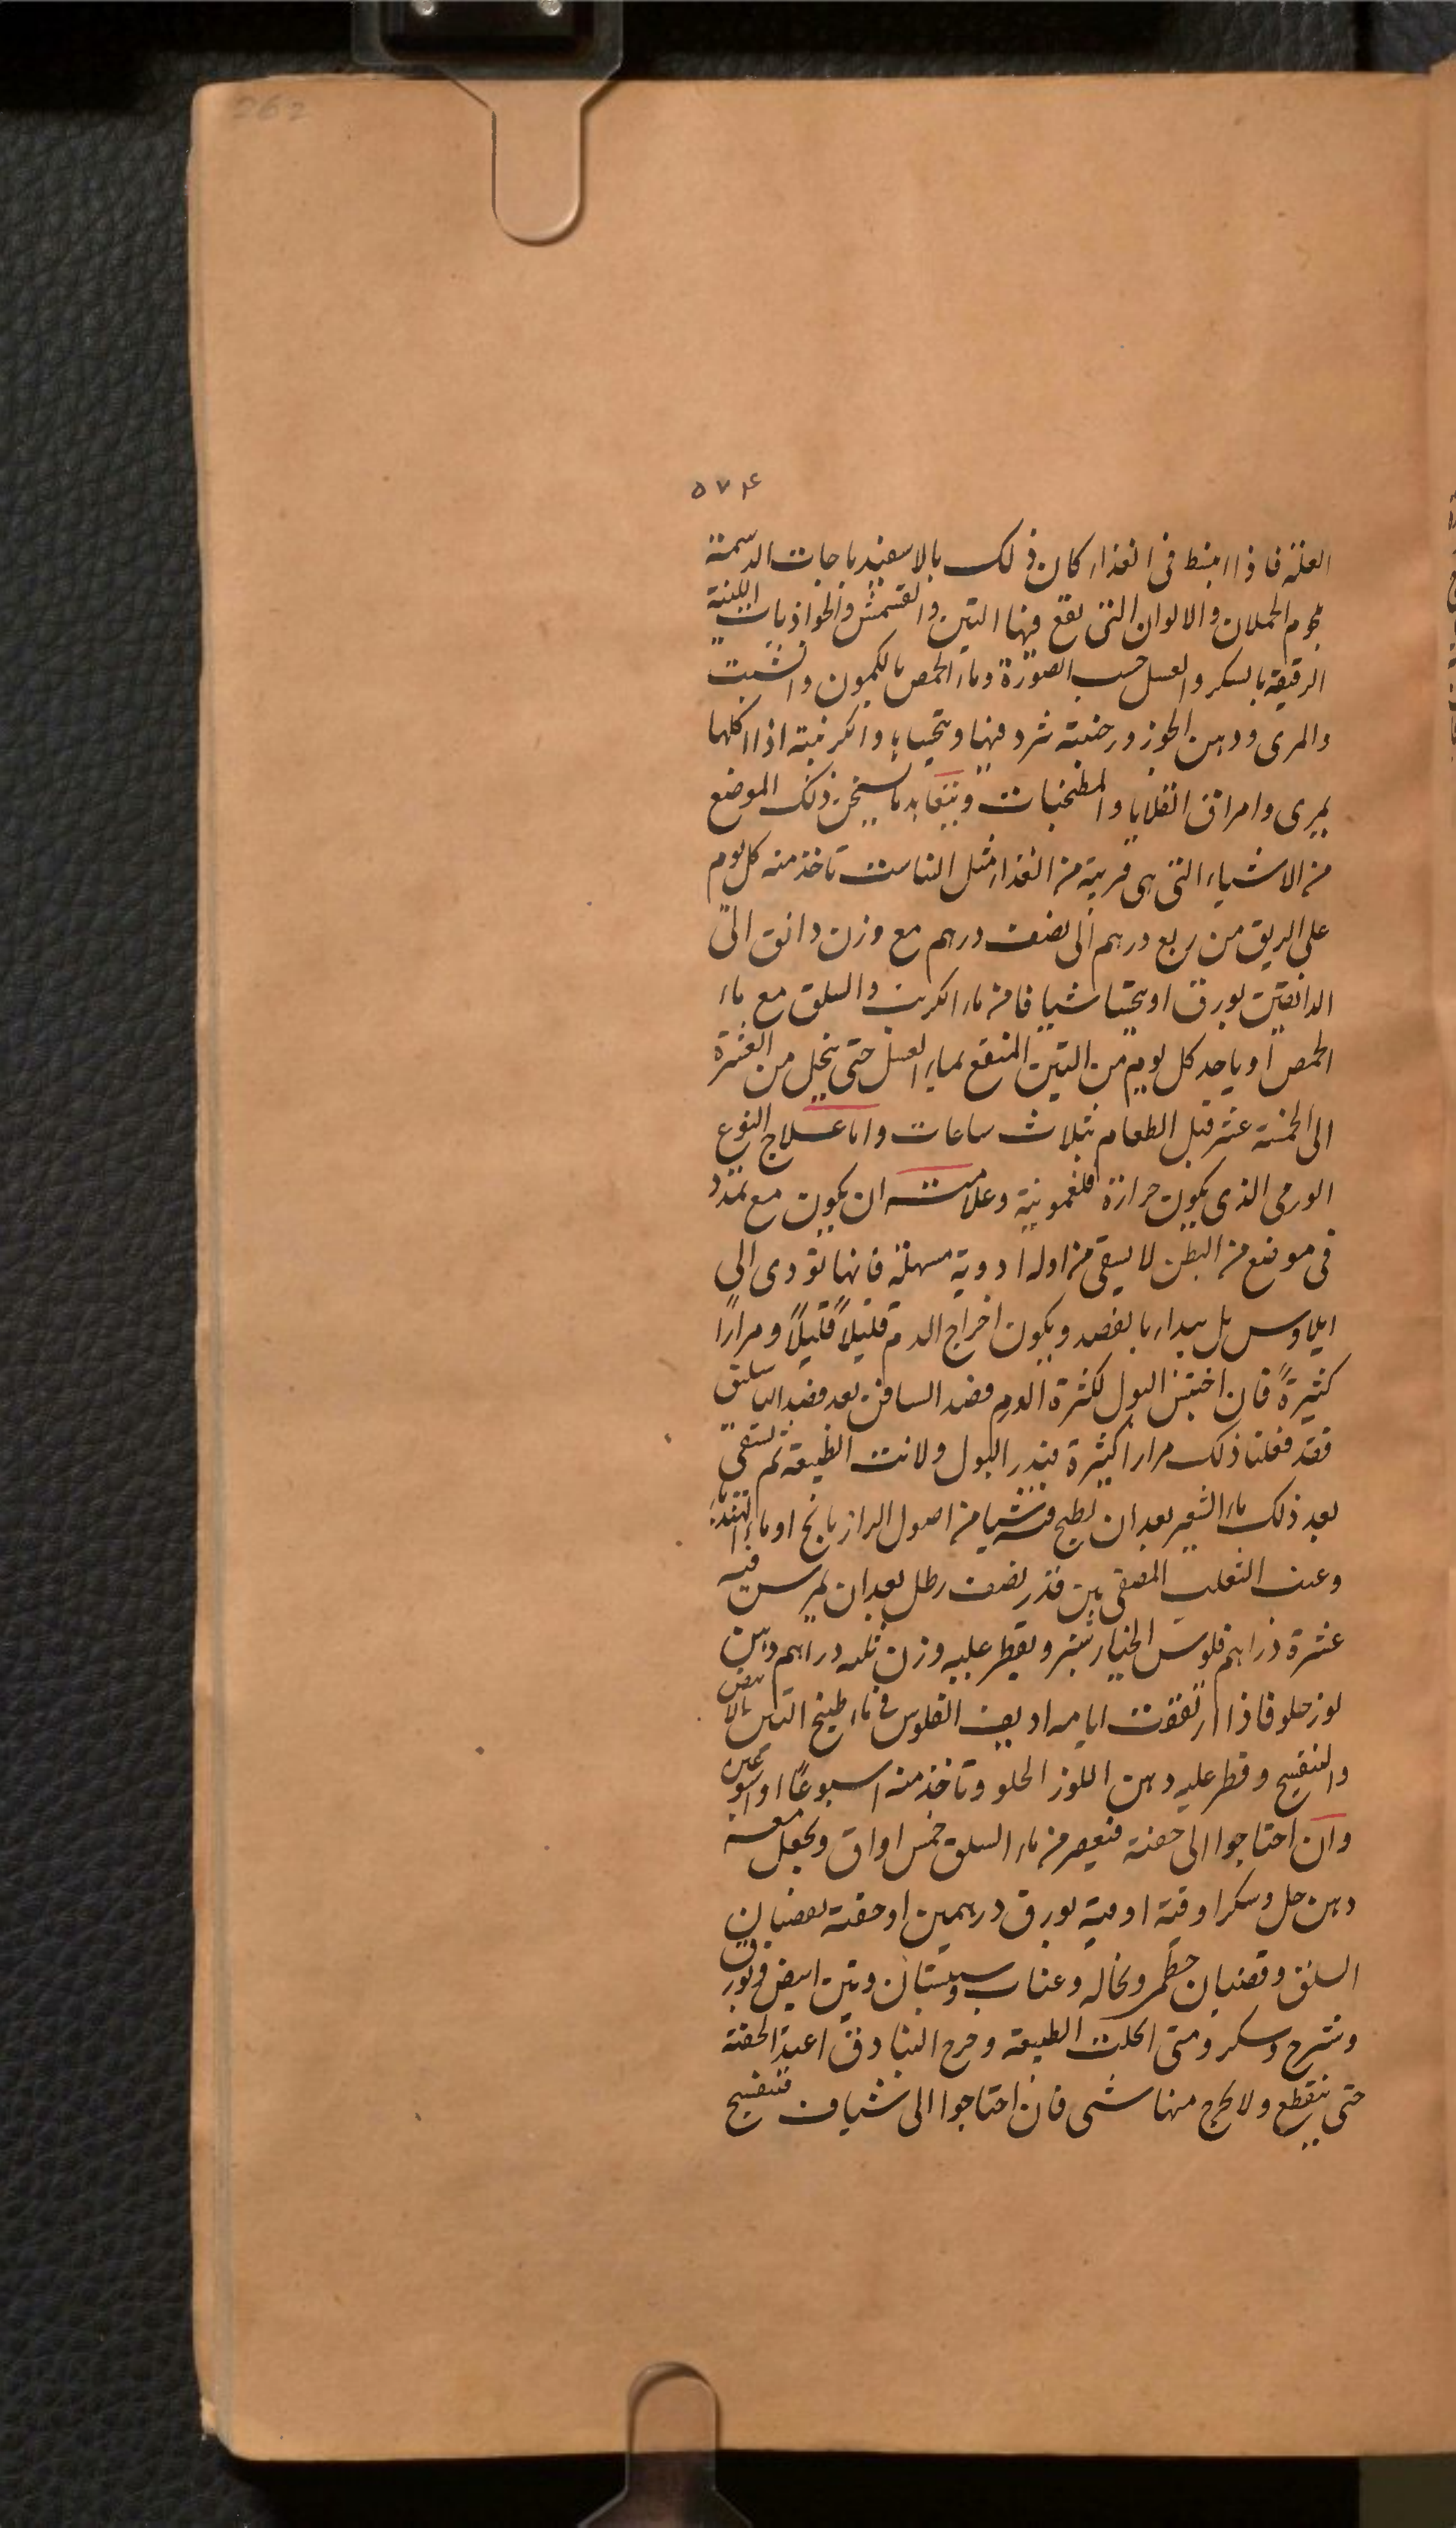 262
٥٧۴
العلة فاذا انبسط فى الغذاء كان ذلك بالاسفيدباجات الدسمة
بلحوم الحملان والالوان التى يقع فيها التين والقشمش والجواذبات اللينة
الرقيقة بالسكر والعسل حسب الصورة وماء الحمص بالكمون والشبت
والمرى ودهن الجوز ورخبية يثرد فيها ويتحساء والكرنبية اذا اكلها
بمرى وامراق القلايا والمطجنات ويتعاهد ما يسخن ذلك الموضع
من الاشياء التى هى قريبة من الغذاء مثل الناسـت تاخذ منه كل يوم
على الريق من ربع درهم الى نصف درهم مع وزن دانق الى
الدانقين بورق او يتحسا شيافا من ماء الكرنب والسلق مع ماء
الحمص او ياخذ كل يوم من التين المنقع بماء العسل حتى ينحل من العشرة
الى الخمسة عشر قبل الطعام بثلاث ساعات واما علاج النوع
الورمى الذى يكون حرارة فلغمونية وعلامته ان يكون مع تمدد
فى موضع من البطن لا يسقى من اوله ادوية مسهلة فانها تودى الى
ايلاوس بل يبداء بالفصد ويكون اخراج الدم قليلاً قليلاً ومراراً
كثيرةً فان احتبس البول لكثرة الورم فصد السافن بعد فصد الباسليق
فقد فعلنا ذلك مرارا كثيرة فبدر البول ولانت الطبيعة ثم يسقى
بعد ذلك ماء الشعير بعد ان يطبخ فيه شيا من اصول الرازيانج او ماء الهندباء
وعنب الثعلب المصفى من قدر نصف رطل بعد ان يمرس فيه
عشرة دراهم فلوس الخيار شنبر ويقطر عليه وزن ثلثه دراهم دهن
لوز حلو فاذا ارتفقت ايامه اديف الفلوس فى ماء طبيخ التين الابيض
والبنفسج وقطر عليه دهن اللوز الحلو وتاخذ منه اسبوعاً او اسبوعين
وان احتاجوا الى حقنة فيعصر من ماء السلق خمس اواق ويجعل معه
دهن حل وسكر اوقية اوقية بورق درهمين او حقنة بقضبان
السلق وقضبان خطمى ونخاله وعناب وسبستان وتين ابيض وبورق
وشرج وسكر ومتى انحلت الطبيعة وخرج البنادق اعيد الحقنة
حتى ينقطع ولا يخرج منها شى فان احتاجوا الى شياف فبنفسج